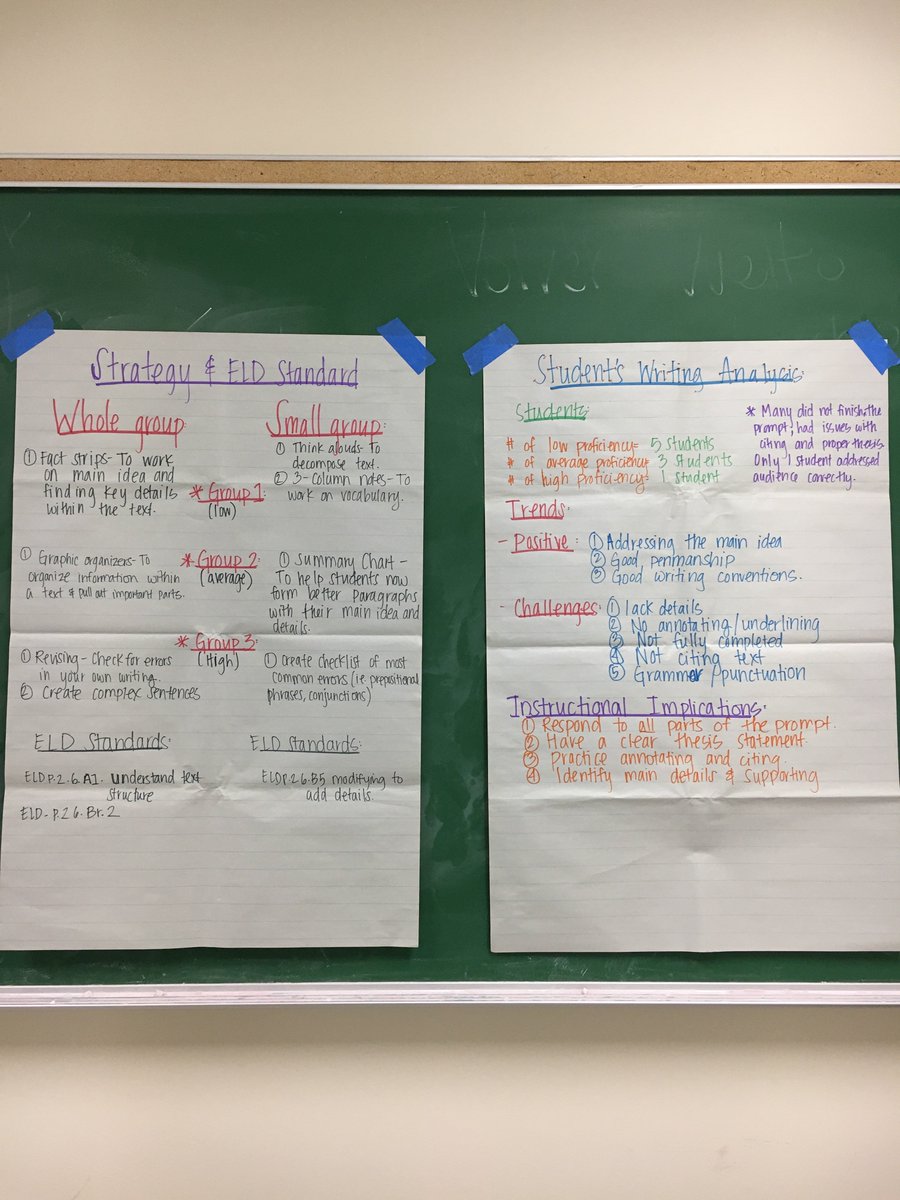 Strategy & ELD Standard
Whole group:
① Fact strips- To work
on main idea and
finding key details
within the text.
Small group:
① Think allouds- To
decompose text.
② 3-column notes- To
work on vocabulary.
* Group 1:
(low)
① Graphic organizers- To
organize information within
a text & pull out important parts.
* Group 2:
(average)
① Summary Chart -
To help students now
form better paragraphs
with their main idea and
details.
* Group 3:
(High)
① Revising - Check for errors
in your own writing.
② Create complex sentences
① Create checklist of most
common errors (ie prepositional
phrases, conjunctions)
ELD Standards:
ELD P.2.6.A1. Understand text
structure
ELD- P.2 6. Br. 2
ELD Standards:
ELD P.2.6.B5 modifying to
add details.
Student's Writing Analysis:
Students:
# of low proficiency= 5 students
# of average proficiency= 3 students
# of high proficiency= 1 student
* Many did not finish the
prompt, had issues with
citing and proper thesis.
Only 1 student addressed
audience correctly.
Trends:
- Positive: ① Addressing the main idea
② Good penmanship
③ Good writing conventions.
- Challenges: ① lack details
② No annotating/underlining
③ Not fully completed
④ Not citing text
⑤ Grammer/punctuation
Instructional Implications:
① Respond to all parts of the prompt.
② Have a clear thesis statement.
③ Practice annotating and citing.
④ Identify main details & supporting